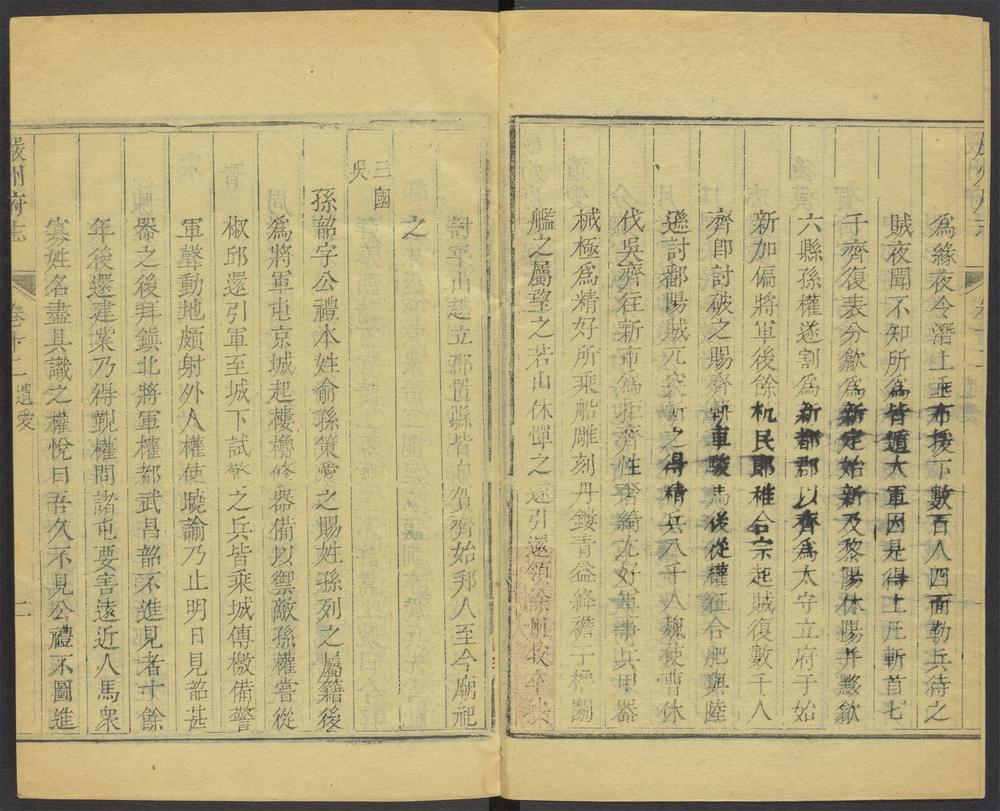 爲緣夜令潛上垂布援下數百人四面勒兵待之
賊夜聞不知所爲皆遁大軍因是得上凡斬首七
千齊復表分歙爲新定始新及黎陽休陽并黟歙
六縣孫權遂割爲新都郡以齊爲太守立府于始
新加偏將軍後餘杭民郎稚合宗起賊復數千人
齊卽討破之賜齊軿車駿馬後從權征合肥與陸
遜討鄱陽賊尤突斬之得精兵八千人魏使曹休
伐吳齊往新市爲拒齊性奢綺尤好軍事兵甲器
械極爲精好所乘船雕刻丹鏤青蓋絳襜干櫓
艦之屬望之若山休憚之遂引還領徐州牧卒
討平山越立郡置縣皆自賀齊始邦人至今廟祀
之
三國
吳
孫韶字公禮本姓俞孫策愛之賜姓孫列之屬籍後
爲將軍屯京城起樓櫓修器備以禦敵孫權嘗從
椒邱還引軍至城下試驚之兵皆乘城傳檄備警
軍聲動地頗射外人權使曉諭乃止明日見韶甚
器之後拜鎭北將軍權都武昌韶不進見者十餘
年後還建業乃得覲權問諸屯要害遠近人馬衆
寡姓名盡具識之權悅曰吾久不見公禮不圖進
嚴州府志
卷十二 遺愛
二